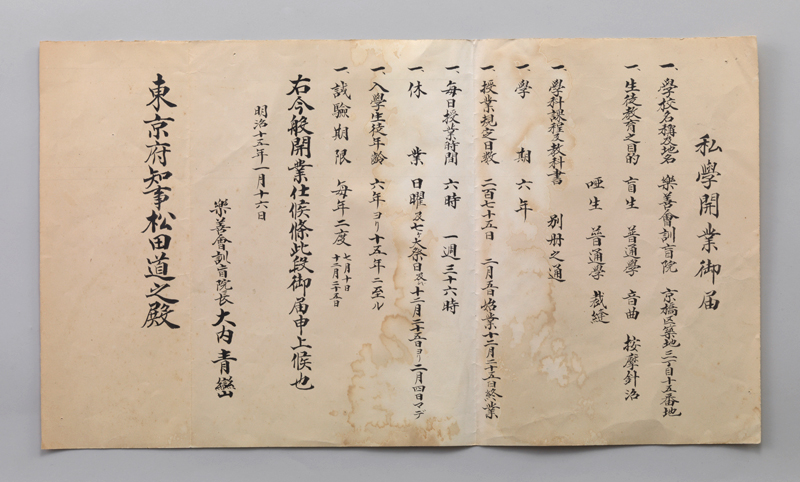 私學開業御届
一、學校名稱及地名 樂善會訓盲院 京橋区築地三丁目十五番地
一、生徒教育之目的 盲生 普通學 音曲 按摩針治
唖生 普通學 裁縫
一、學科課程及教科書 別册之通
一、學期 六年
一、授業規定日数 二百七十五日 二月五日始業十二月二十五日終業
一、毎日授業時間 六時 一週三十六時
一、休業 日曜及七大祭日及十二月二十五日ヨリ二月四日マデ
一、入學生徒年齢 六年ヨリ十五年ニ至ル
一、試驗期限 毎年二度 七月十日 十二月二十五日
右今般開業仕候條此段御届申上候也
明治十三年一月十六日
樂善會訓盲院長 大内青巒
東京府知事松田道之殿